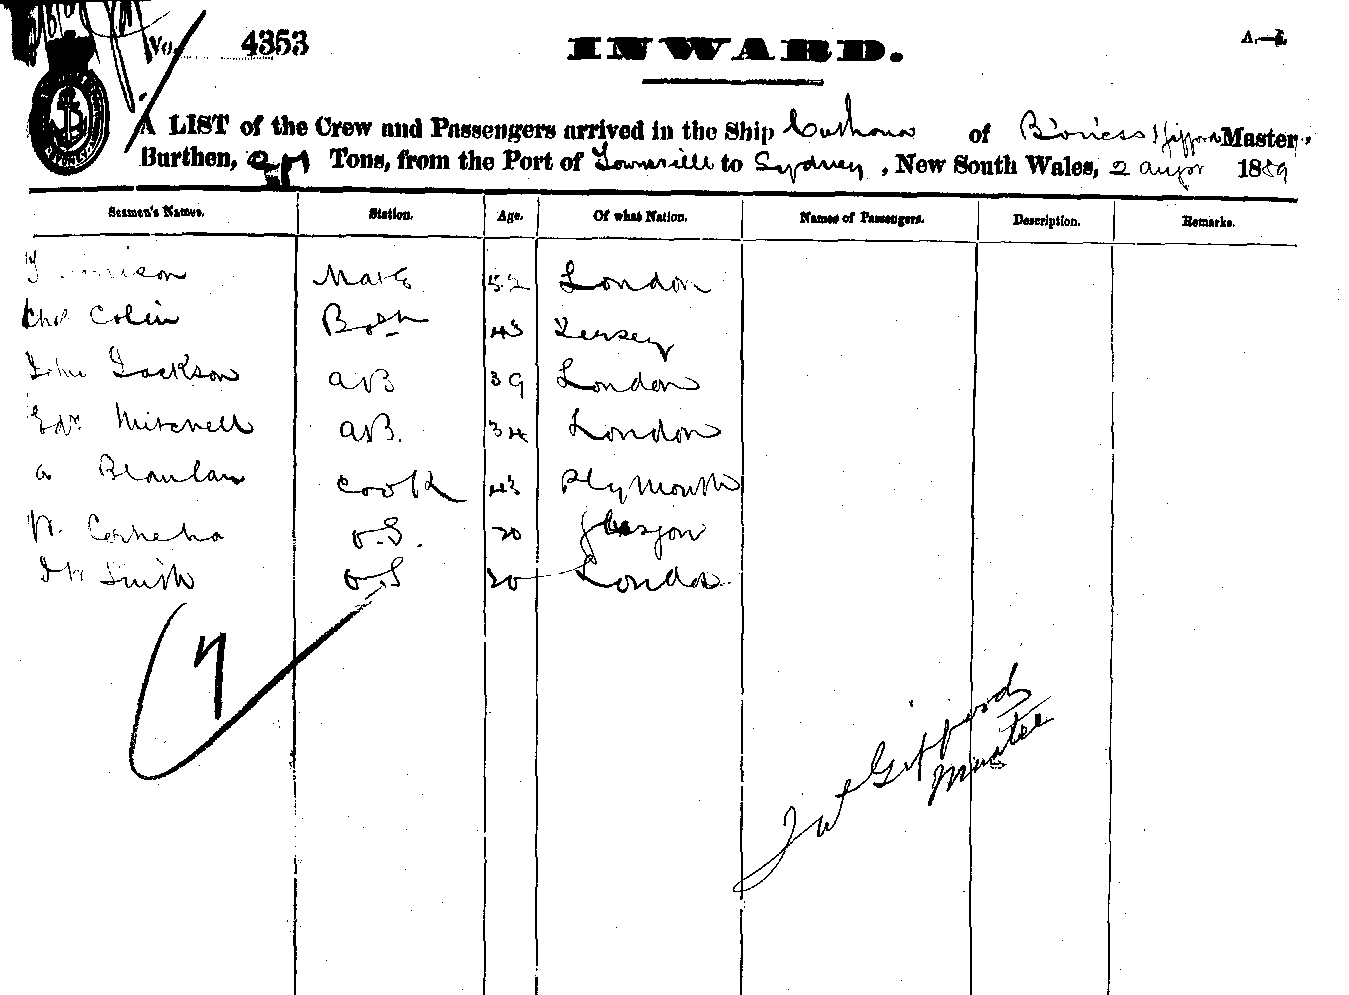 No. 4353 INWARD.
A LIST of the Crew and Passengers arrived in the Ship of Gifford Master,
Burthen, Tons, from the Port of Townsville to Sydney, New South Wales, 2 1889
Seamen's Names. Station. Age. Of what Nation. Names of Passengers. Description. Remarks.
Mate 52 London
Chs Colin Bosn 43 Jersey
John Jackson AB 39 London
Edw Mitchell AB. 34 London
a Cook 43 Plymouth
W. O.S. 20 Glasgow
Smith O.S 20 London
7
Gifford
Master